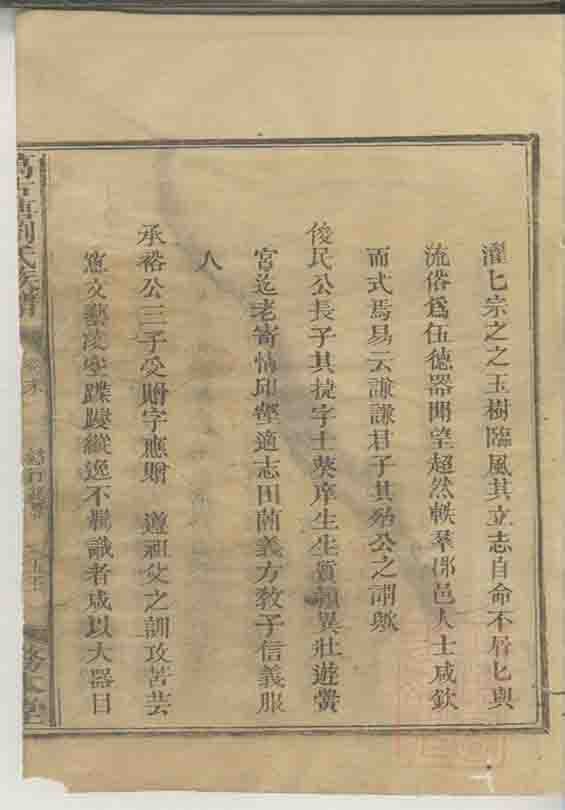 濯匕宗之之玉樹臨風其立志自命不屑匕與
流俗爲伍德器閎望超然軼羣郡邑人士咸欽
而式焉易云謙謙君子其殆公之謂歟
俊民公長子其捷字士葵庠生生質穎異壯遊黌
宮迄老寄情邱壑適志田園義方敎子信義服
人
承裕公三子受贈字應贈 遵祖父之訓攻苦芸
窓文藝凌空蹀躞縱逸不羈識者咸以大器目
劉氏族譜
務本堂